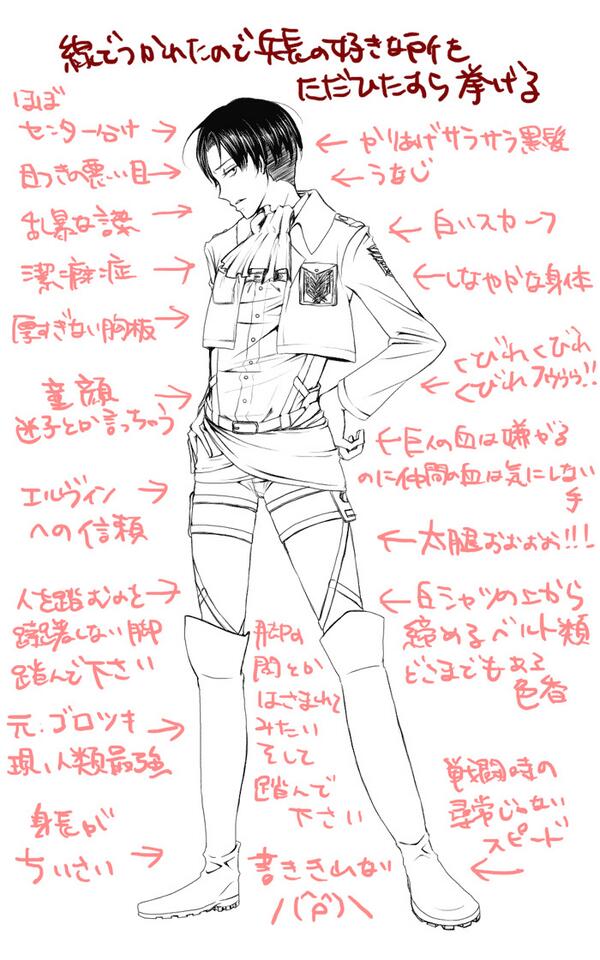 線でつかれたので兵長の好きな所を
ただひたすら挙げる
ほぼ
センター分け
目つきの悪い目
乱暴な言葉
潔癖症
厚すぎない胸板
童顔
迷子とか言っちゃう
エルヴィン
への信頼
人を踏むのを
躊躇しない脚
踏んで下さい
元・ゴロツキ
現・人類最強
身長が
ちいさい
かりあげサラサラ黒髪
うなじ
白いスカーフ
しなやかな身体
くびれくびれ
くびれフゥゥゥ!!
巨人の血は嫌がる
のに仲間の血は気にしない
手
太腿おおおお!!!
白シャツの上から
締めるベルト類
どこまでもある
色香
脚の
間とか
はさまれて
みたい
そして
踏んで
下さい
戦闘時の
尋常じゃない
スピード
書ききれない
/(^ρ^)\